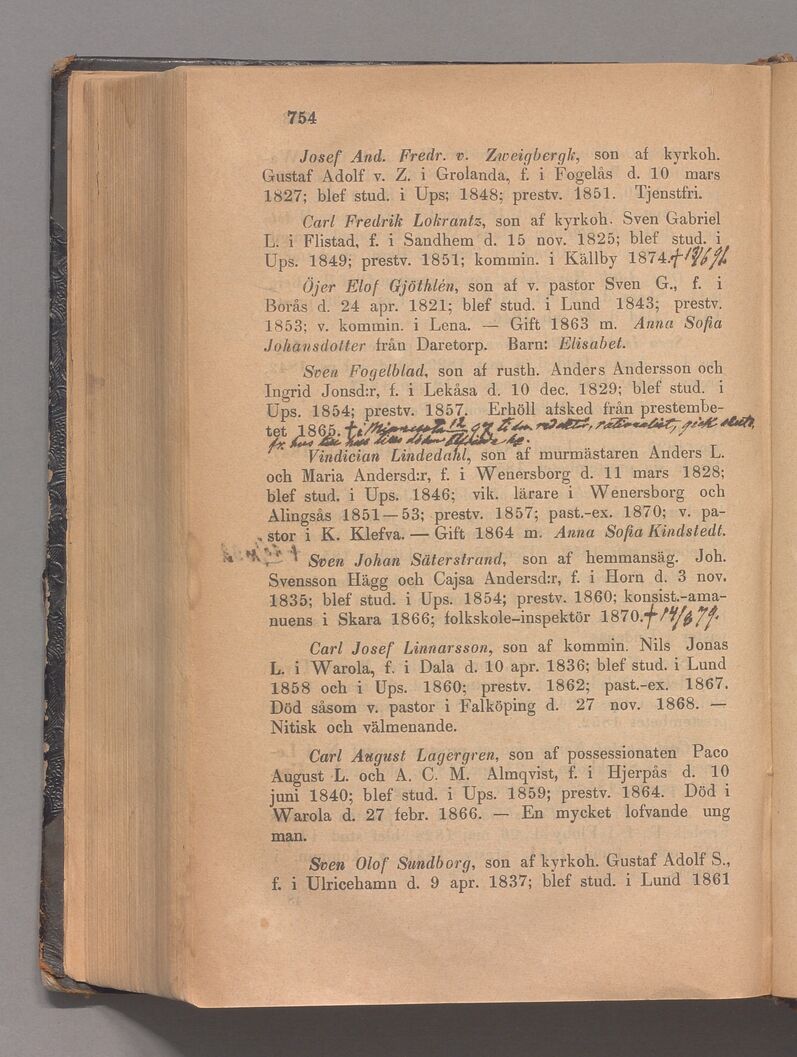 754
Josef And. Fredr. v. Zweigbergk, son af kyrkoh.
Gustaf Adolf v. Z. i Grolanda, f. i Fogelås d. 10 mars
1827; blef stud. i Ups; 1848; prestv. 1851. Tjenstfri.
Carl Fredrik Lokrantz, son af kyrkoh. Sven Gabriel
L. i Flistad, f. i Sandhem d. 15 nov. 1825; blef stud. i
Ups. 1849; prestv. 1851; kommin. i Källby 1874. †
Öjer Elof Gjöthlén, son af v. pastor Sven G., f. i
Borås d. 24 apr. 1821; blef stud. i Lund 1843; prestv.
1853; v. kommin. i Lena. — Gift 1863 m. Anna Sofia
Johansdotter från Daretorp. Barn: Elisabet.
Sven Fogelblad, son af rusth. Anders Andersson och
Ingrid Jonsd:r, f. i Lekåsa d. 10 dec. 1829; blef stud. i
Ups. 1854; prestv. 1857. Erhöll afsked från prestembe-
tet 1865. † i Minnesota 12 rationalist, gick
fr. hus hus
Vindician Lindedahl, son af murmästaren Anders L.
och Maria Andersd:r, f. i Wenersborg d. 11 mars 1828;
blef stud. i Ups. 1846; vik. lärare i Wenersborg och
Alingsås 1851—53; prestv. 1857; past.-ex. 1870; v. pa-
stor i K. Klefva. — Gift 1864 m. Anna Sofia Kindstedt.
Sven Johan Säterstrand, son af hemmansäg. Joh.
Svensson Hägg och Cajsa Andersd:r, f. i Horn d. 3 nov.
1835; blef stud. i Ups. 1854; prestv. 1860; konsist.-ama-
nuens i Skara 1866; folkskole-inspektör 1870. †
Carl Josef Linnarsson, son af kommin. Nils Jonas
L. i Warola, f. i Dala d. 10 apr. 1836; blef stud. i Lund
1858 och i Ups. 1860; prestv. 1862; past.-ex. 1867.
Död såsom v. pastor i Falköping d. 27 nov. 1868. —
Nitisk och välmenande.
Carl August Lagergren, son af possessionaten Paco
August L. och A. C. M. Almqvist, f. i Hjerpås d. 10
juni 1840; blef stud. i Ups. 1859; prestv. 1864. Död i
Warola d. 27 febr. 1866. — En mycket lofvande ung
man.
Sven Olof Sundborg, son af kyrkoh. Gustaf Adolf S.,
f. i Ulricehamn d. 9 apr. 1837; blef stud. i Lund 1861